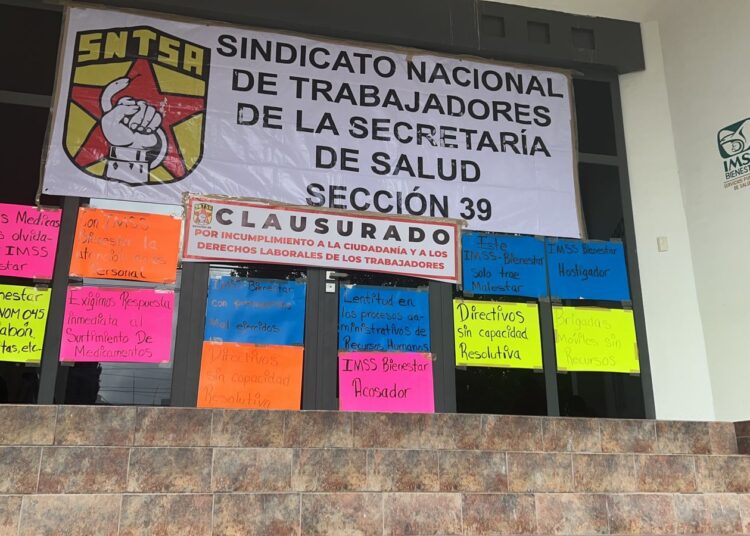 SNTSA
SINDICATO NACIONAL
DE TRABAJADORES
DE LA SECRETARÍA
DE SALUD
SECCIÓN 39
SNTSA
CLAUSURADO
POR INCUMPLIMIENTO A LA CIUDADANÍA Y A LOS
DERECHOS LABORALES DE LOS TRABAJADORES
IMSS
BIENESTAR
s Medicos
olvida-
IMSS
estar
Con IMSS
Bienestar la
atencion
Personal
Este
IMSS-Bienestar
Solo trae
Malestar
IMSS Bienestar
Hostigador
enestar
NOM 045
abón
tas, etc
Exigimos Respuesta
inmediata al
Surtimiento De
Medicamentos
IMSS-Bienestar
con
Mal ejercidos
Lentitud en
los procesos ad-
ministrativos de
Recursos Humanos
Directivos
sin capacidad
Resolutiva
Brigadas
Moviles sin
Recursos
Directivos
sin capacidad
Resolutiva
IMSS Bienestar
Acosador